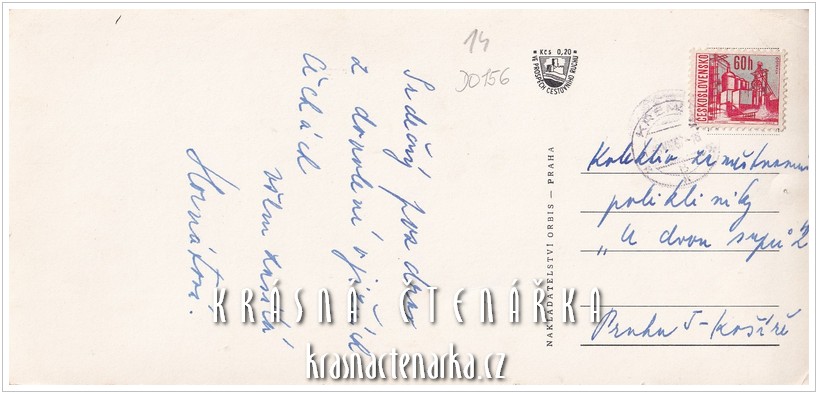 14
D0156
Kčs 0,20
VE PROSPĚCH CESTOVNÍHO RUCHU
ČESKOSLOVENSKO
60h
Srdečný pozdrav
z dovolené v jižních
Čechách
všem zasílá
NAKLADATELSTVÍ ORBIS — PRAHA
Kolektiv zaměstnanců
polikliniky
„U dvou supů 2
Praha 5-Košíře
KRÁSNÁ ČTENÁŘKA
krasnactenarka.cz